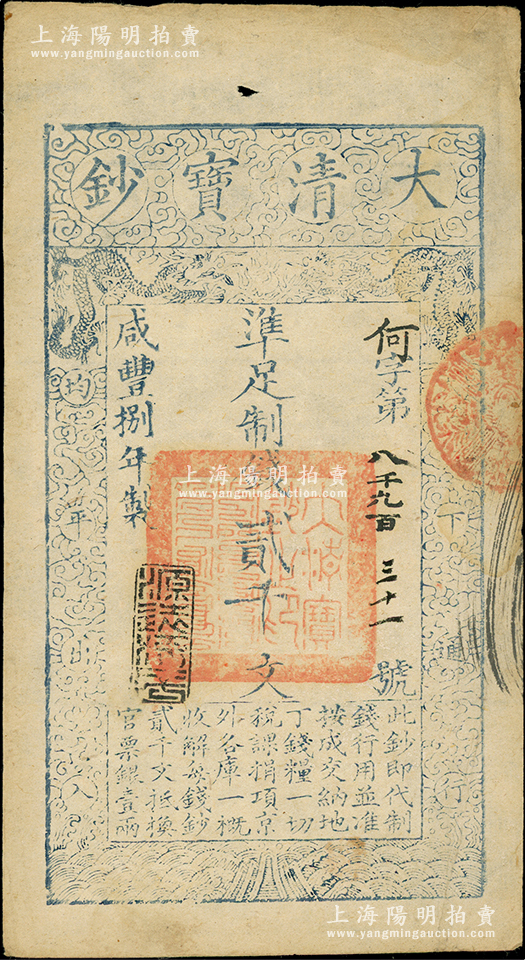 上海陽明拍賣
www.yangmingauction.com
大清寶鈔
何字第八千九百三十一號
準足制錢貳千文
咸豐捌年製
下通行
均平出入
此鈔即代制
錢行用並准
按成交納地
丁錢糧一切
稅課捐項京
外各庫一概
收解每錢鈔
貳千文抵換
官票銀壹兩
上海陽明拍賣
www.yangmingauction.com
上海陽明拍賣
www.yangmingauction.com